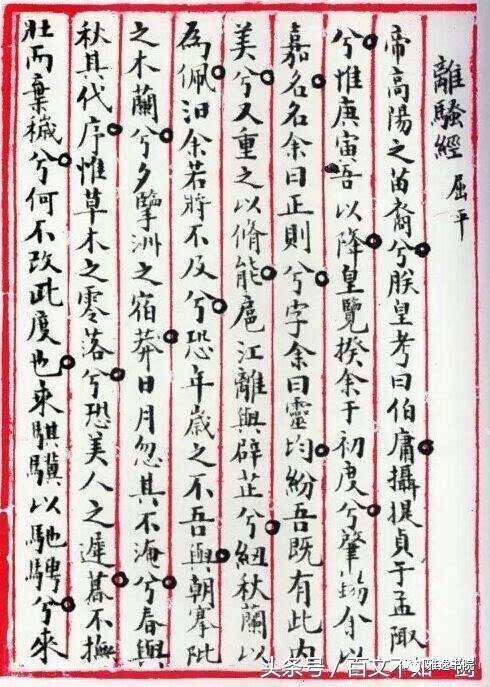 離騷經 屈平
帝高陽之苗裔兮朕皇考曰伯庸攝提貞于孟陬
兮惟庚寅吾以降皇覽揆余于初度兮肇錫余以
嘉名名余曰正則兮字余曰靈均紛吾既有此内
美兮又重之以脩能扈江離與辟芷兮紉秋蘭以
為佩汩余若將不及兮恐年歲之不吾與朝搴阰
之木蘭兮夕擥洲之宿莽日月忽其不淹兮春與
秋其代序惟草木之零落兮恐美人之遲暮不撫
壯而棄穢兮何不改此度也來騏驥以馳騁兮來
头条号 / 百文不如一